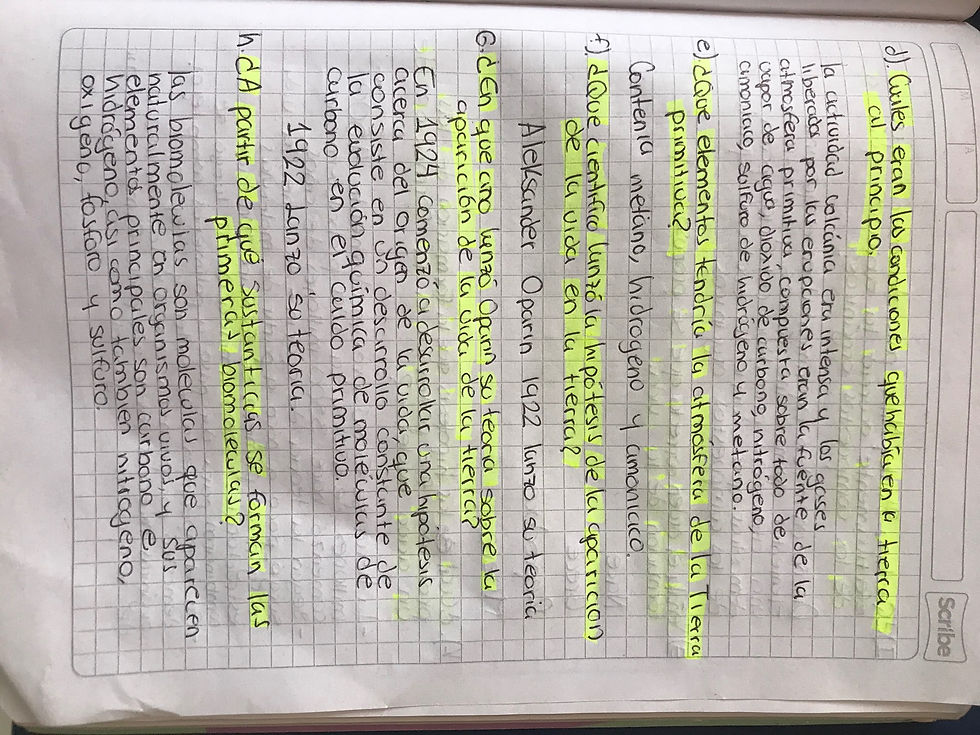 Scribe
d) Cuales eran las condiciones que había en la tierra
al principio,
la actividad volcánica era intensa y los gases
liberada por las erupciones eran la fuente de la
atmosfera primitiva, compuesta sobre todo de
vapor de agua, dioxido de carbono, nitrógeno,
amoniaco, sulfuro de hidrógeno y metano.
e) ¿Que elementos tendría la atmósfera de la Tierra
primitiva?
Contenía metano, hidrogeno y amonicico.
f) ¿Que cientifico lanzó la hipótesis de la aparicion
de la vida en la tierra?
Aleksander Oparin 1922 lanzo su teoria
G. ¿En que año lanzó Oparin su teoría sobre la
aparición de la vida de la tierra?
En 1924 comenzó a desarrollar una hipótesis
acerca del origen de la vida, que
consiste en un desarrollo constante de
la evolución química de moléculas de
carbono en el caldo primitivo.
1922 Lanzo su teoria.
h. ¿A partir de que sustanticias se forman las
primeras biomoleculas?
las biomoleculas son moleculas que aparecen
naturalmente en organismos vivos, y sus
elementos principales son carbono e
hidrógeno, asi como tambien nitrogeno,
oxigeno, fosforo y sulfuro.